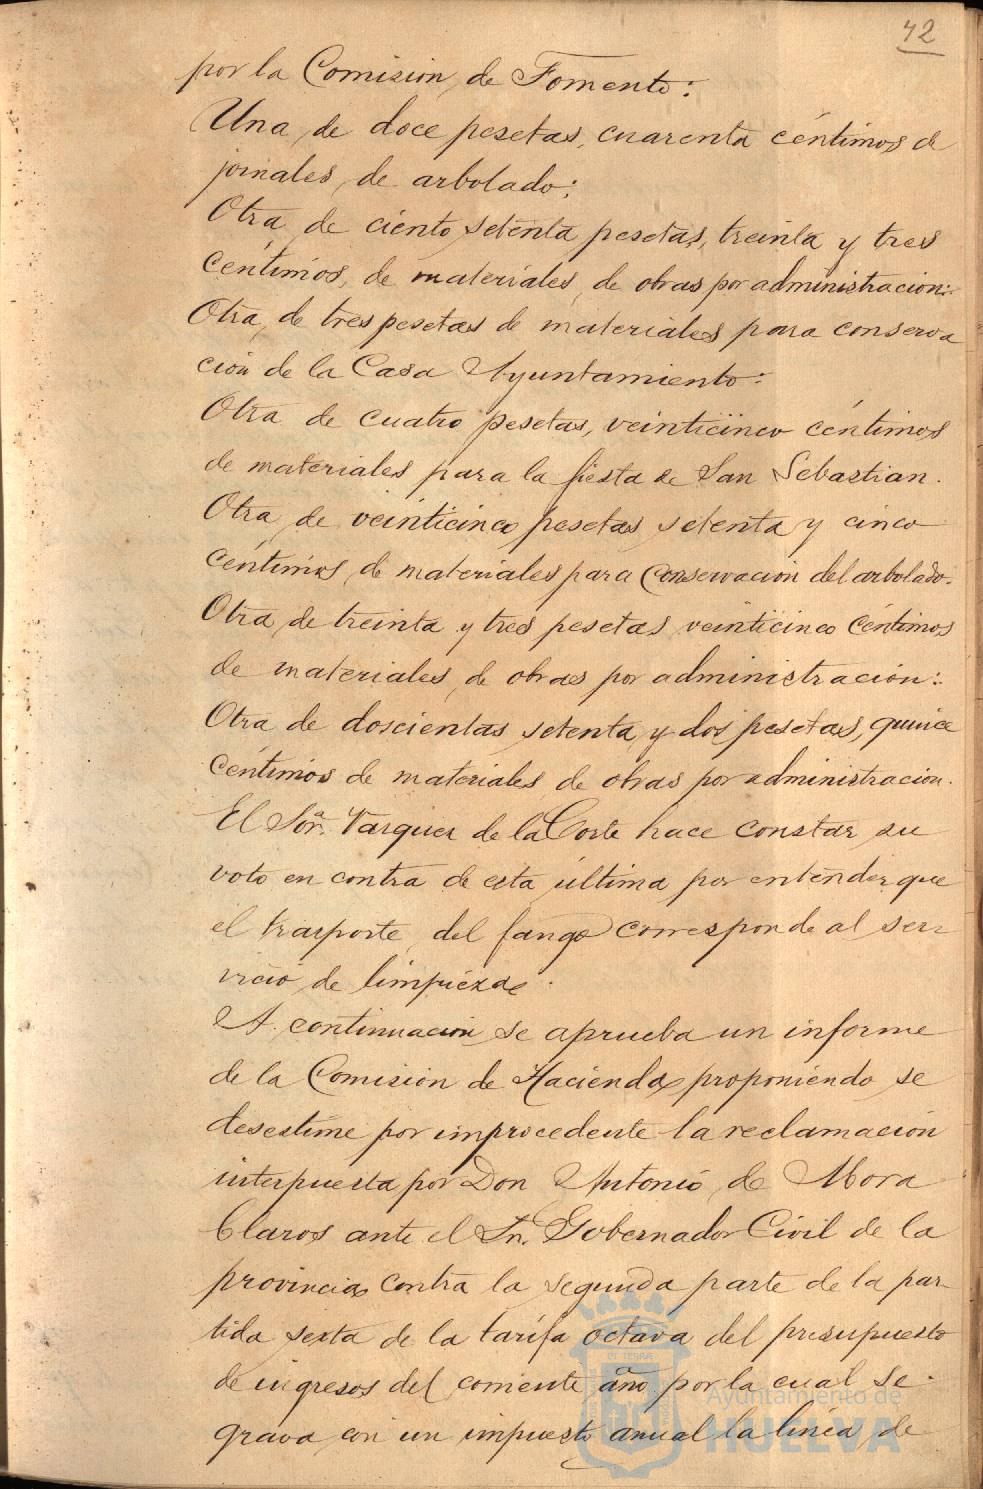 42
por la Comision de Fomento:
Una de doce pesetas, cuarenta céntimos de
jornales de arbolado:
Otra de ciento setenta pesetas, treinta y tres
céntimos, de materiales de obras por administracion:
Otra de tres pesetas de materiales para conserva
ción de la Casa Ayuntamiento:
Otra de cuatro pesetas, veinticinco céntimos
de materiales para la fiesta de San Sebastian.
Otra de veinticinco pesetas setenta y cinco
céntimos de materiales para conservacion del arbolado.
Otra de treinta y tres pesetas veinticinco céntimos
de materiales de obras por administración:
Otra de doscientas setenta y dos pesetas, quince
céntimos de materiales de obras por administracion.
El Sor. Vazquez de la Corte hace constar su
voto en contra de esta última por entender que
el trasporte del fango corresponde al ser-
vicio de limpieza.
A continuacion se aprueba un informe
de la Comisión de Hacienda proponiendo se
desestime por improcedente la reclamación
interpuesta por Don Antonio de Mora
Claros ante el Sr. Gobernador Civil de la
provincia contra la segunda parte de la par-
tida sexta de la tarifa octava del presupuesto
de ingresos del corriente año por la cual se
grava con un impuesto anual la línea de
Ayuntamiento de
HUELVA